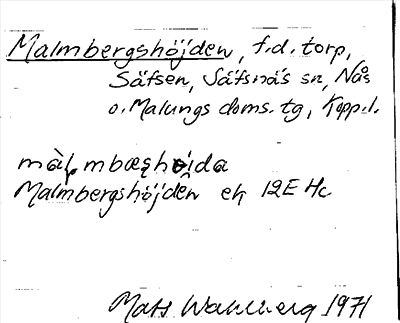 Malmbergshöjden, f.d. torp,
Säfsen, Säfsnäs sn, Nås
o. Malungs doms. tg, Kopp. l.
Malmbergshöjden ek 12E Hc
Mats Wahlberg 1971